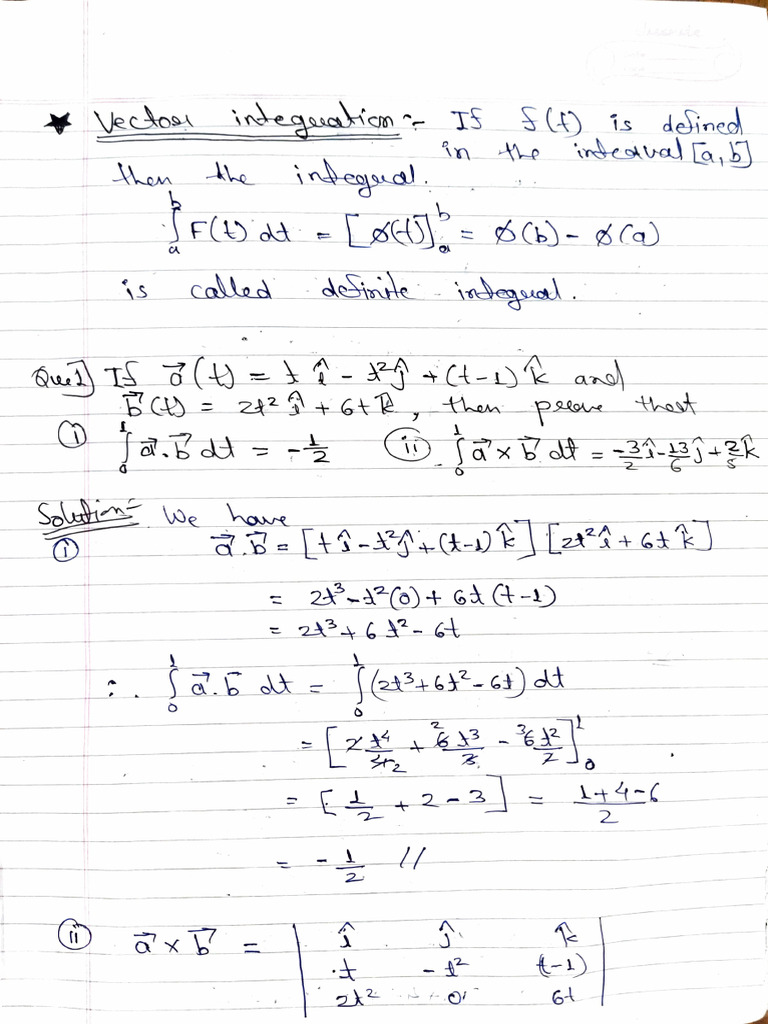 ★ Vector integration :- If f(t) is defined
in the interval [a, b]
then the integral.
∫ₐᵇ F(t) dt = [ø(t)]ₐᵇ = ø(b) - ø(a)
is called definite integral.
Que1] If a⃗(t) = t î - t²ĵ + (t-1) k̂ and
b⃗(t) = 2t² î + 6t k̂, then prove that
(i) ∫₀¹ a⃗.b⃗ dt = -1/2 (ii) ∫₀¹ a⃗ × b⃗ dt = -3/2 î - 13/6 ĵ + 2/5 k̂
Solution:- We have
(i) a⃗.b⃗ = [t î - t²ĵ + (t-1) k̂] [2t² î + 6t k̂]
= 2t³ - t²(0) + 6t (t-1)
= 2t³ + 6t² - 6t
∴ ∫₀¹ a⃗.b⃗ dt = ∫₀¹ (2t³ + 6t² - 6t) dt
= [2t⁴/4 2 + 2 6t³/3 - 3 6t²/2]₀¹
= [1/2 + 2 - 3] = (1+4-6)/2
= -1/2 //
(ii) a⃗ × b⃗ = | î ĵ k̂ |
t -t² (t-1)
2t² 0 6t